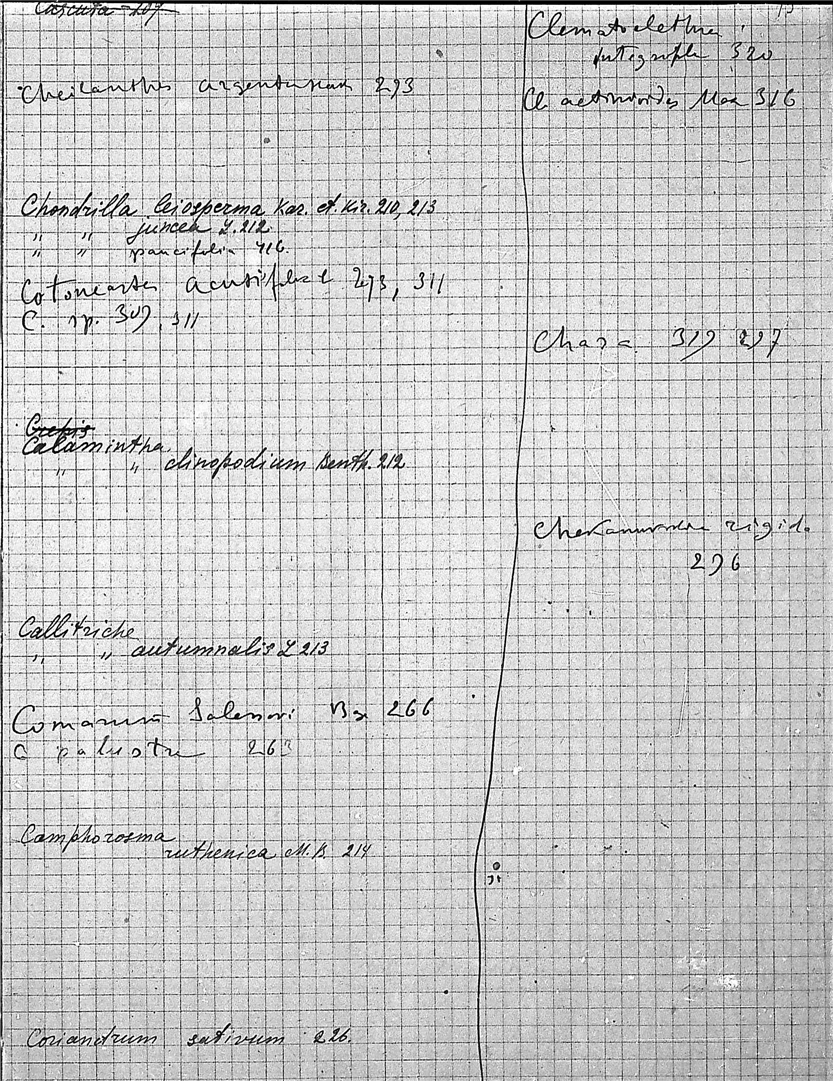 Cuscuta 207
Cheilanthes argentuseae 293
Chondrilla leiosperma Kar. et. Kir. 210, 213
" " juncea L. 212
" " paucifolia 416.
Cotoneaster acutifolia 293, 311
C. sp. 309, 311
Crepis
Calamintha
" " clinopodium Benth. 212
Callitriche
" " autumnalis L 213
Comarum Salesovi Bge 266
C palustre 263
Camphorosma
ruthenica M.B. 214
Coriandrum sativum 226.
Clematoclethra
integrifolia 320
Cl. actinidioides Max 316
Chara 319 297
rigida
296